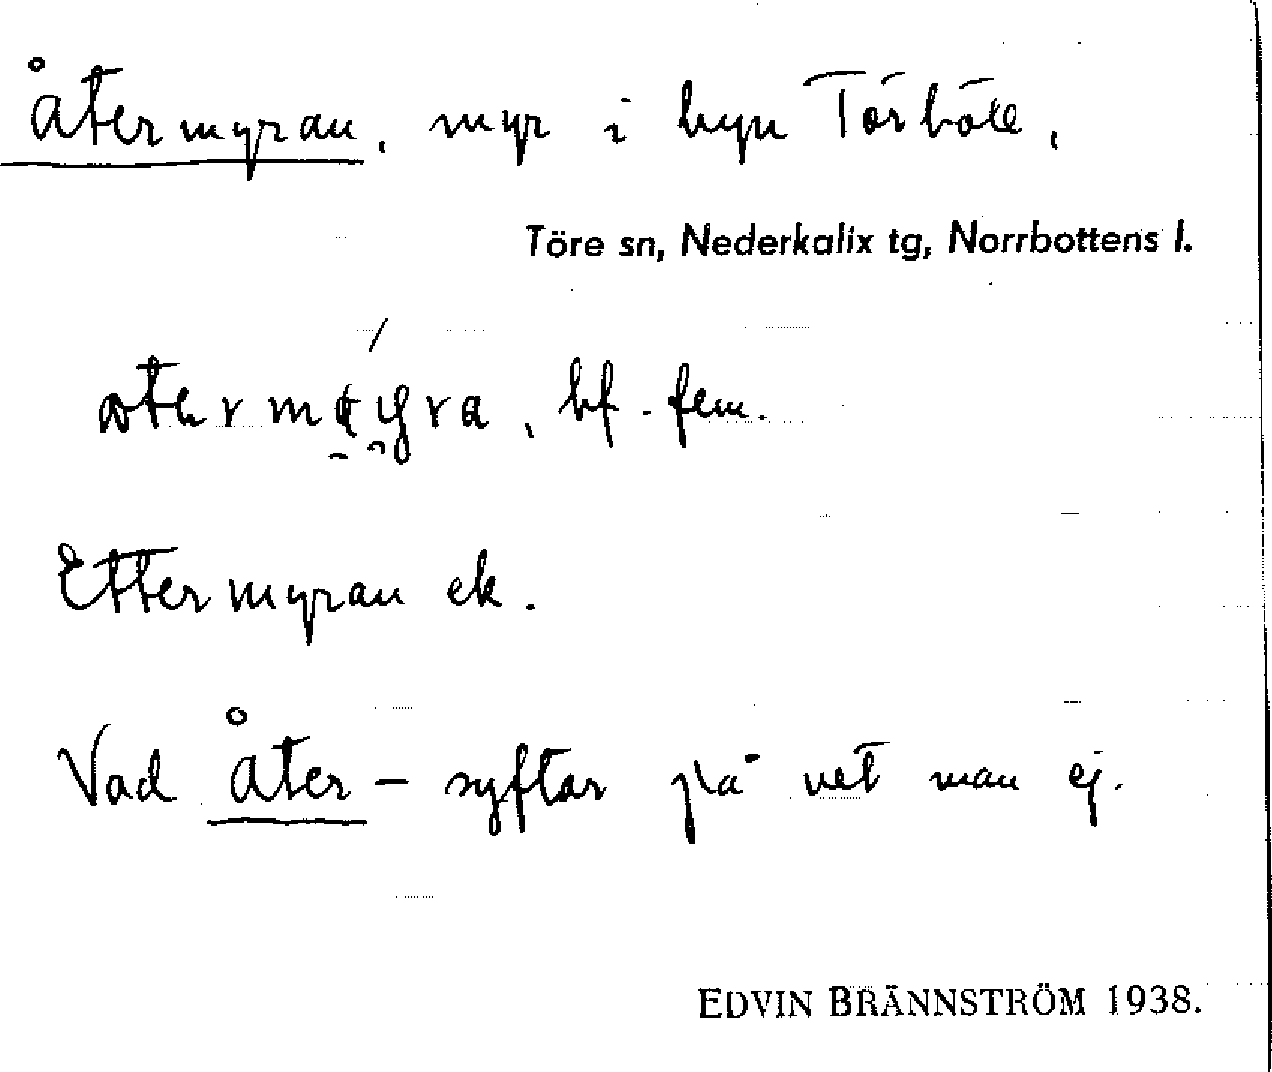 Återmyran, myr i byn Törböle,
Töre sn, Nederkalix tg, Norrbottens l.
bf. fem.
Ettermyran ek.
Vad Åter- syftar på vet man ej.
EDVIN BRÄNNSTRÖM 1938.